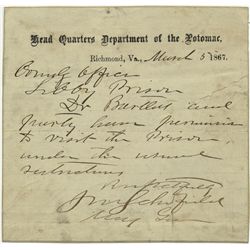 Head Quarters Department of the Potomac.
Richmond, Va., March 5 1867.
Comdg Officer
Libby Prison
Dr Bartlett and
party have permission
to visit the Prison,
under the usual
restrictions